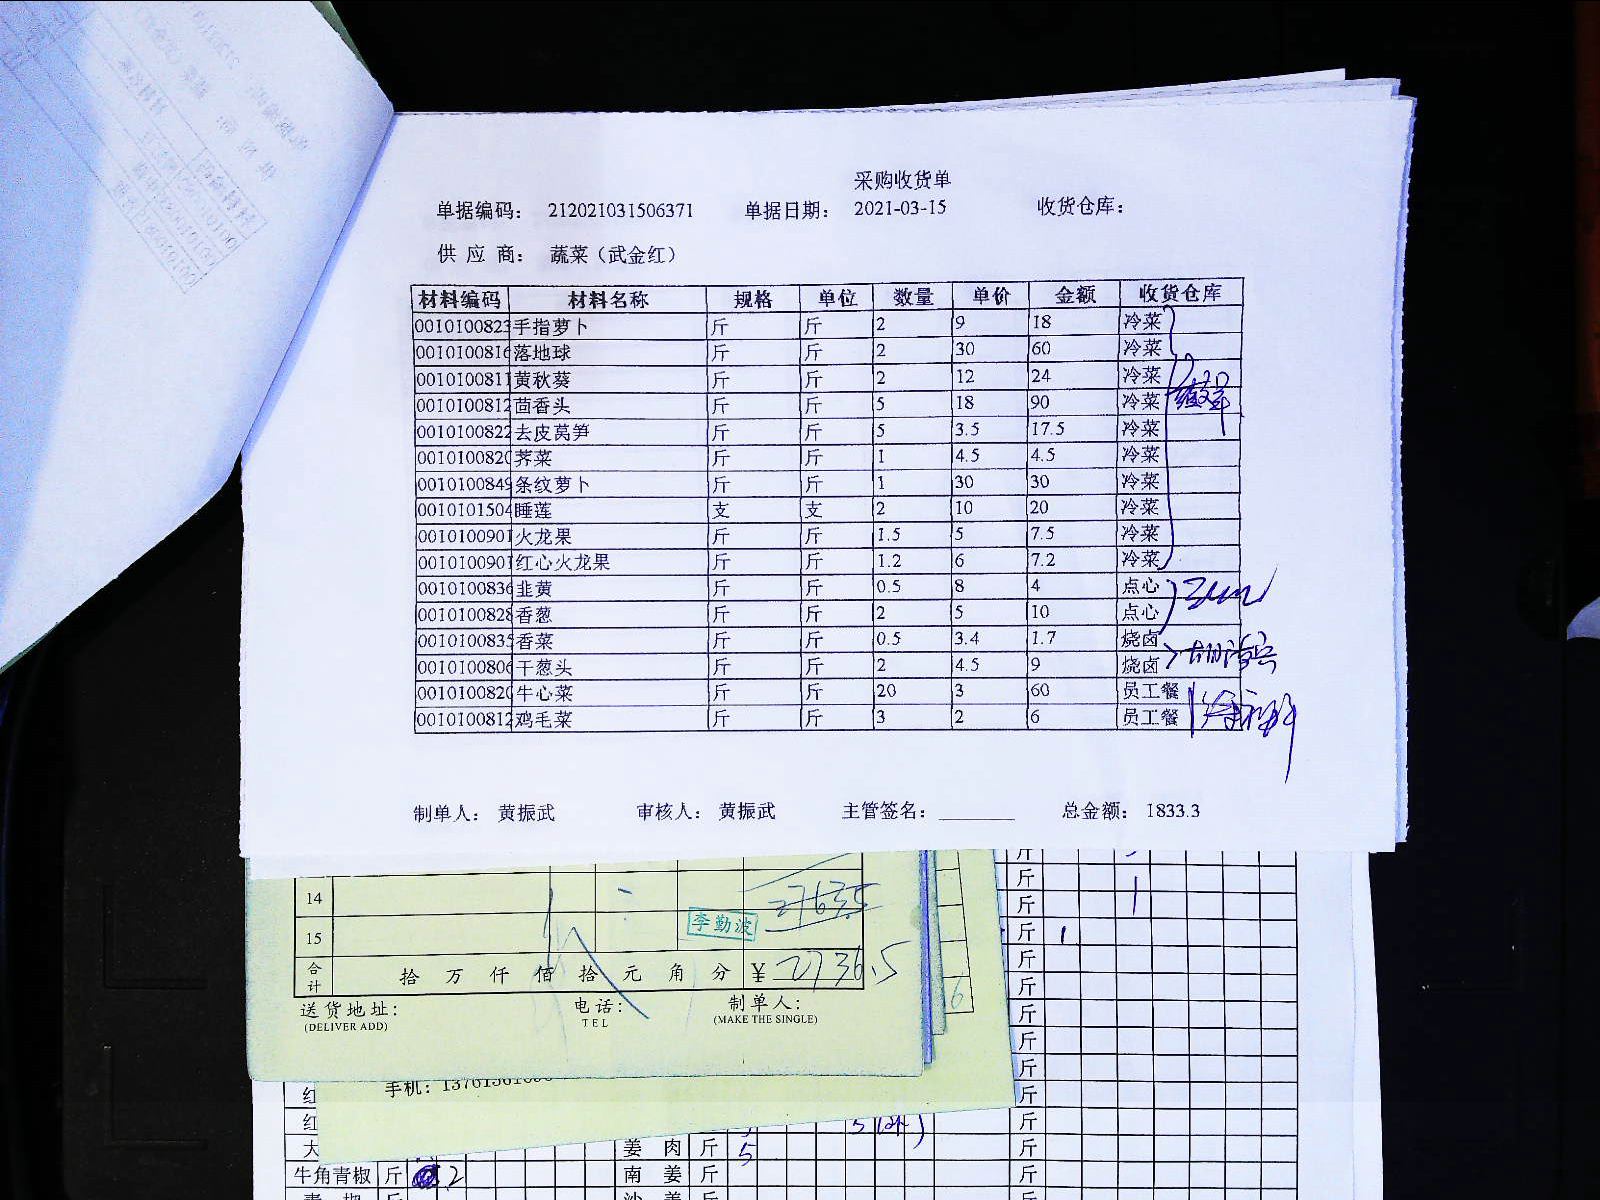 采购收货单
单据编码: 212021031506371 单据日期: 2021-03-15 收货仓库:
供 应 商: 蔬菜（武金红）
材料编码 材料名称 规格 单位 数量 单价 金额 收货仓库
0010100823 手指萝卜 斤 斤 2 9 18 冷菜
0010100816 落地球 斤 斤 2 30 60 冷菜
0010100811 黄秋葵 斤 斤 2 12 24 冷菜
0010100812 茴香头 斤 斤 5 18 90 冷菜
0010100822 去皮莴笋 斤 斤 5 3.5 17.5 冷菜
001010082 荠菜 斤 斤 1 4.5 4.5 冷菜
0010100849 条纹萝卜 斤 斤 1 30 30 冷菜
0010101504 睡莲 支 支 2 10 20 冷菜
001010090 火龙果 斤 斤 1.5 5 7.5 冷菜
001010090 红心火龙果 斤 斤 1.2 6 7.2 冷菜
0010100836 韭黄 斤 斤 0.5 8 4 点心
0010100828 香葱 斤 斤 2 5 10 点心
001010083 香菜 斤 斤 0.5 3.4 1.7 烧卤
0010100806 干葱头 斤 斤 2 4.5 9 烧卤
001010082 牛心菜 斤 斤 20 3 60 员工餐
0010100812 鸡毛菜 斤 斤 3 2 6 员工餐
制单人: 黄振武 审核人: 黄振武 主管签名: 总金额: 1833.3
14
15 李勤波
合计 拾 万 仟 佰 拾 元 角 分 ¥ 2736.5
送货地址: 电话: 制单人:
(DELIVER ADD) TEL (MAKE THE SINGLE)
手机:
斤
斤
斤
斤 1
斤
斤
斤
斤
斤
红 斤
红 斤
大 姜 肉 斤 5 斤
牛角青椒 斤 2 南 姜 斤 斤